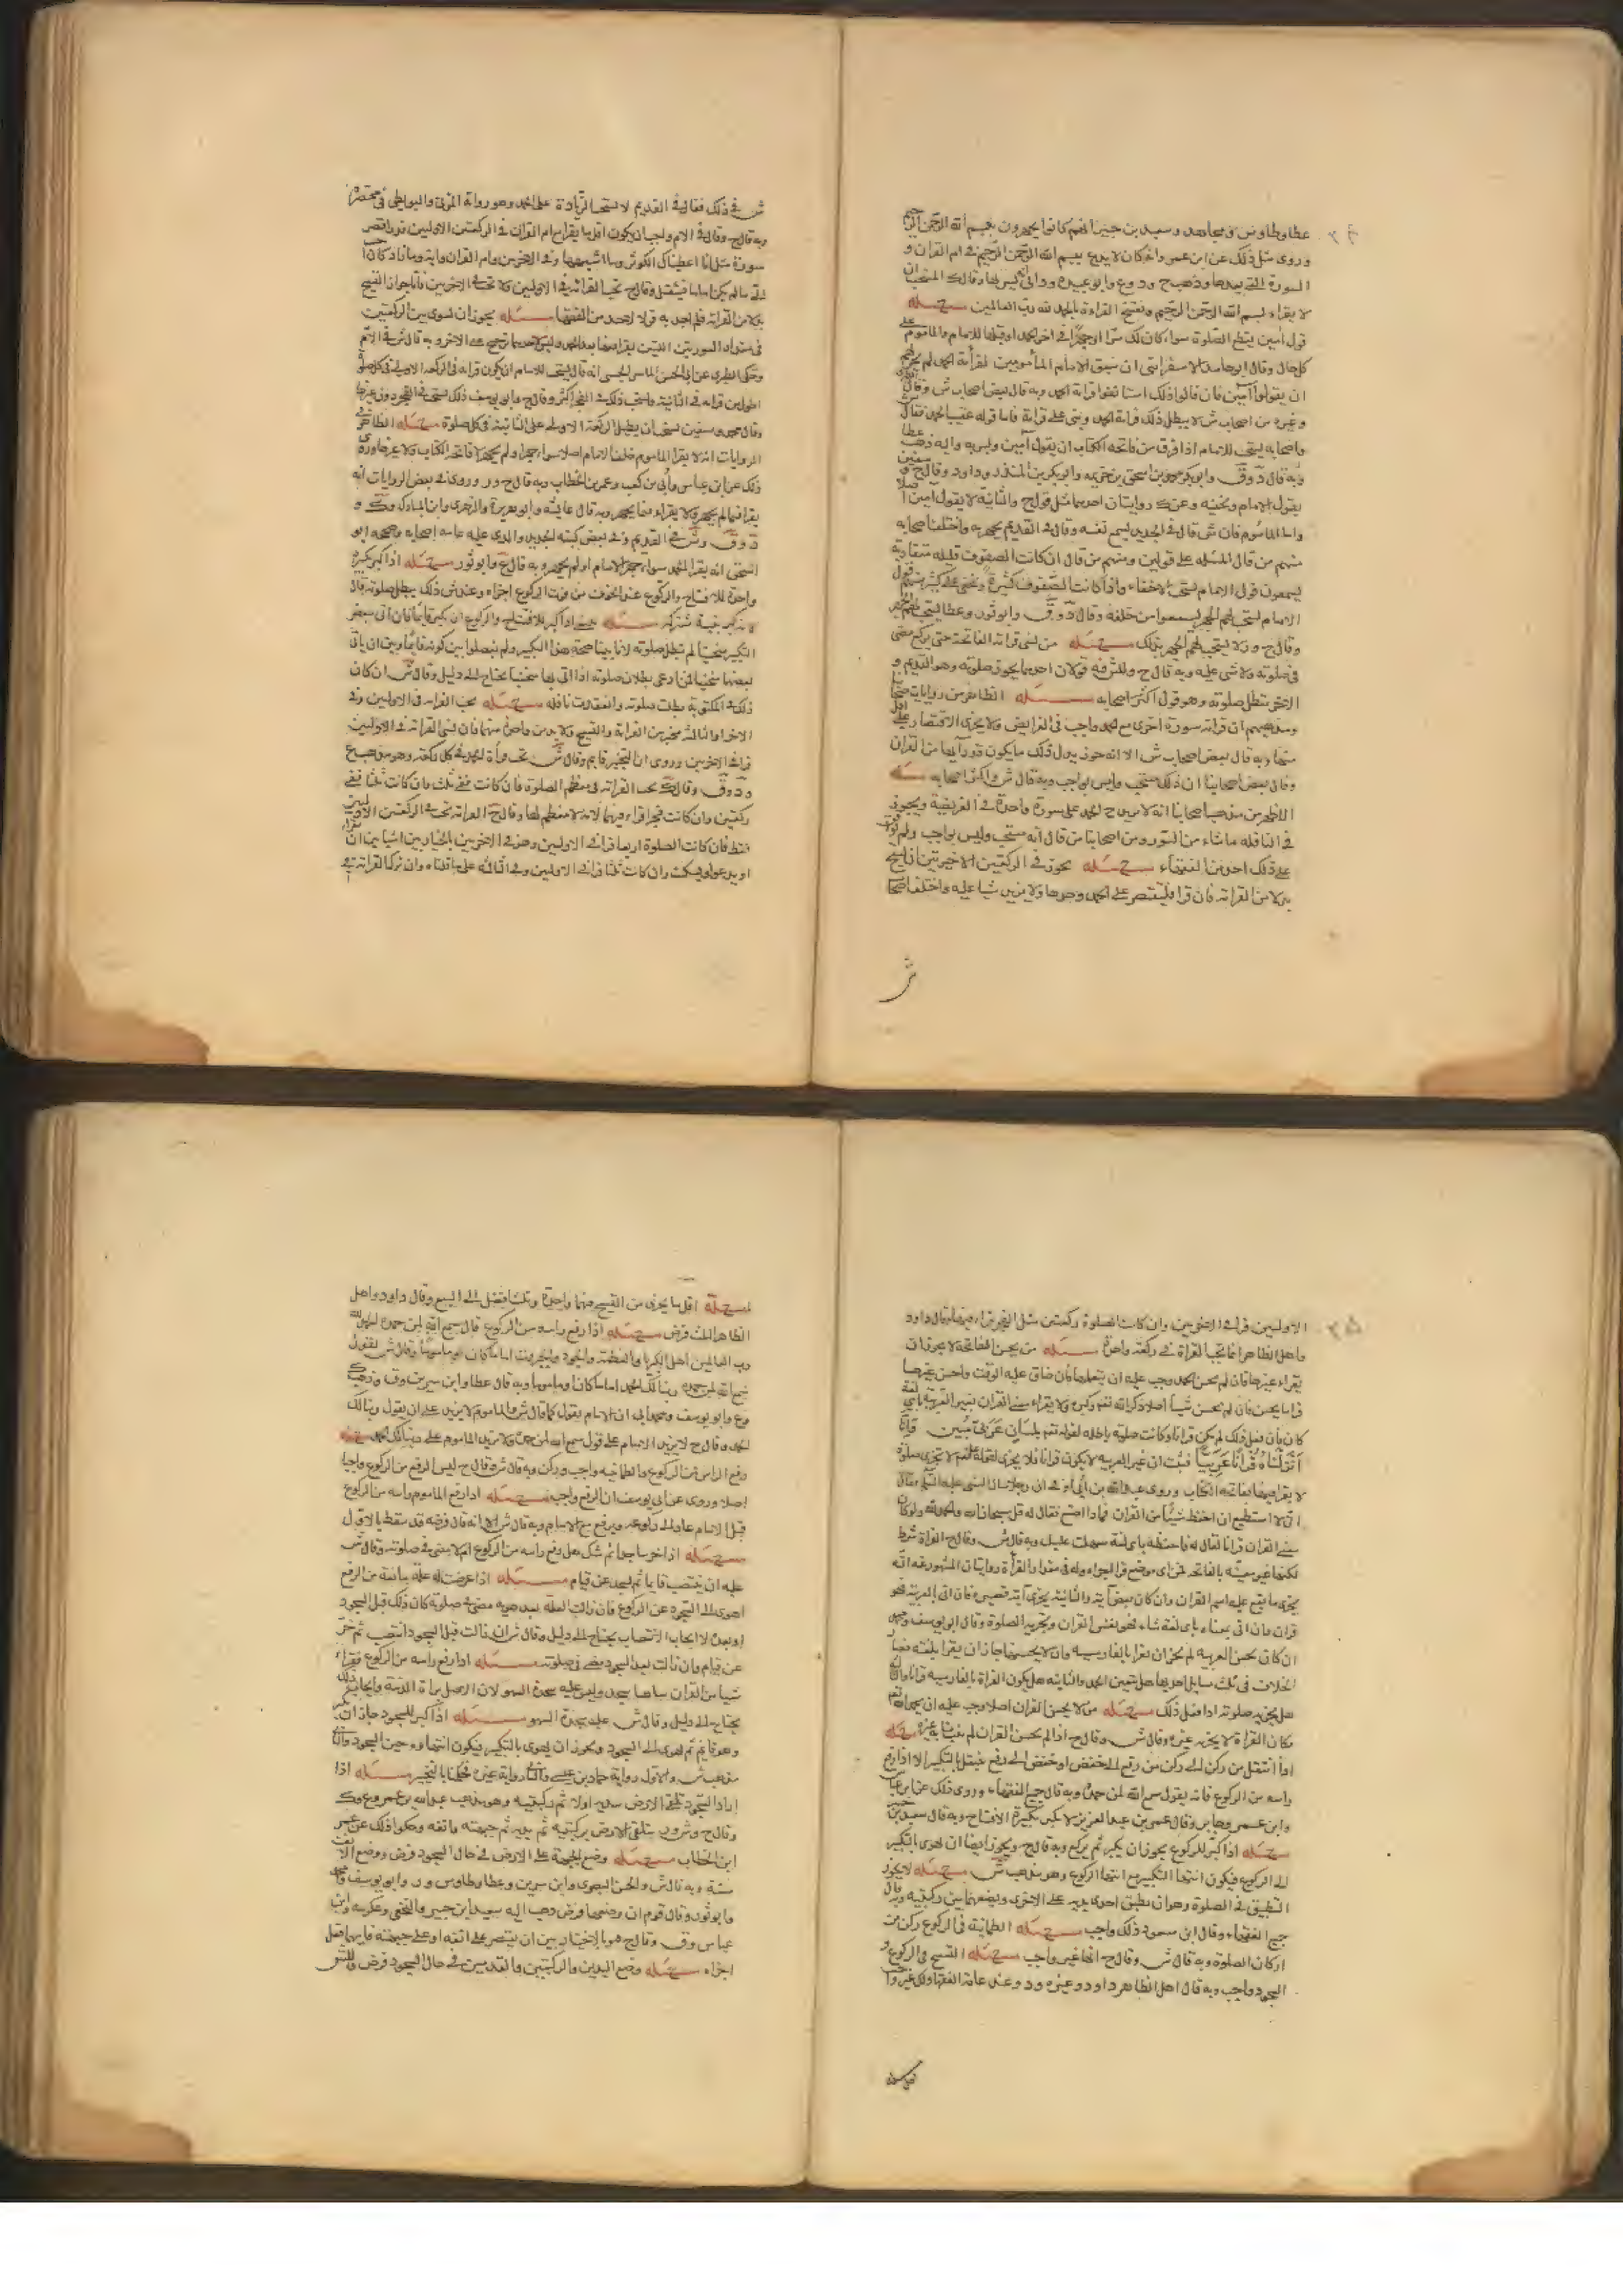 عطا وطاوس ومجاهد وسعيد بن جبير انهم كانوا يجهرون ببسم الله الرحمن الرحيم
وروى مثل ذلك عن ابن عمر وانه كان لا يدع بسم الله الرحمن الرحيم في ام القران و
السورة التي بعدها وذهب ح ود وع وابو عبيده
لا يقراء بسم الله الرحمن الرحيم ويفتتح القراءة بالحمد لله رب العالمين مسئله
قول آمين يقطع الصلوة سواء كان ذلك سرّا او جهرًا في اخر الحمد او قبلها للامام والماموم على
كل حال وقال ابو حامد الاسفراينى ان سبق الامام المأمومين لقرأة الحمد لم يجز لهم
ان يقولوا آمين فان قالوا ذلك استانفوا قراءة الحمد وبه قال بعض اصحاب ش وقال
وغيره من اصحاب ش لا يبطل ذلك قراءة الحمد ويبنى على قراءة فاما قوله عقيب الحمد فقال ش
واصحابه يستحب للامام اذا فرق من فاتحة الكتاب ان يقول آمين واليه ذهب عطا
وبه قال وابو بكر محمد بن اسحق بن خزيمه وابو بكر بن المنذر وداود وقال ح وسفين
يقول الامام ويخفيه وعن ك روايتان احديهما مثل قول ح والثانية لا يقول آمين اصلا
واما الماموم فان ش قال في الجديد يسمع نفسه وقال في القديم يجهر به واختلف اصحابه
منهم من قال المسئله على قولين ومنهم من قال ان كانت الصفوف قليله متقاربه
يسمعون قول الامام يستحب الاخفاء واذا كانت الصفوف كثيرة
الامام يستحب لهم الجهر ليسمعوا من خلفهم وقال وابو ثور وعطا يستحب لهم الجهر
وقال ح ور لا يستحب لهم الجهر بذلك مسئله من نسى قراءة الفاتحة حتى يركع مضى
في صلوته ولا شى عليه وبه قال ح وللش فيه قولان احدهما يجوز صلوته وهو القديم و
الاخر تبطل صلوته وهو قول اكثر اصحابه مسئله الظاهر من روايات اصحابنا
ومذهبهم ان قراءة سورة اخرى مع الحمد واجب في الفرايض ولا يجزى الاقتصار على اقل
منها وبه قال بعض اصحاب ش الا انه جوز بدل ذلك ما يكون قدر آيها من القران
وقال بعض اصحابنا ان ذلك مستحب وليس بواجب وبه قال ش واكثر اصحابه مسئله
الاظهر من مذهب اصحابنا انه لا يزيد مع الحمد على سورة واحدة في الفريضة ويجوز
في النافله ما شاء من السور ومن اصحابنا من قال انه مستحب وليس بواجب ولم يوافق
على ذلك احد من الفقهاء مسئله يجوز في الركعتين الاخيرتين ان يسبح
بدلا من القراءة فان قرا فليقتصر على الحمد وحدها ولا يزيد شيا عليه واختلف اصحاب
ش
ش في ذلك فقال في القديم لا يستحب الزيادة على الحمد وهو رواية المزنى والبويطى في مختصرهما
وبه قال ح وقال في الام ويجب ان يكون اقل ما يقرا مع ام القران في الركعتين الاولتين قدر اقصر
سورة مثل انا اعطيناك الكوثر وما اشبهها وفي الاخرتين بام القران واية وما زاد كان احب
الى ما لم يكن اماما فيثقل وقال ح تجب القراءة في الاولتين ولا تجب في الاخرتين فاما جواز التسبيح
بدلا من القراءة فلم اجد به قولا لاحد من الفقها مسئله يجوز ان يسوى بين الركعتين
في مقدار السورتين اللتين يقراهما بعد الحمد وليس لاحديهما ترجيح على الاخر وبه قال ش في الام
وحكى الطبرى عن ابي الحسن الماسرجسى انه قال يستحب للامام ان يكون قراءته في الركعة الاولى في كل صلوة
اطول من قراءته في الثانية ويستحب ذلك في الفجر اكثر وقال ح وابو يوسف ذلك يستحب في الفجر دون غيرها
وقال محمد وسفين يستحب ان يطيل الركعة الاولى على الثانية في كل صلوة مسئله الظاهر في
الروايات انه لا يقرا الماموم خلف الامام اصلا سواء جهر او لم يجهر لا فاتحة الكتاب ولا غيرها وروى
ذلك عن ابن عباس وابي بن كعب وعمر بن الخطاب وبه قال ح ور وروى في بعض الروايات انه
يقرا فيما لم يجهر ولا يقراء فيما يجهر وبه قال عايشه وابو هريرة والزهرى وابن المبارك وك و
وش في القديم وفي بعض كتبه الجديد والذى عليه عامة اصحابه وصححه ابو
اسحق انه يقرا الحمد سواء جهر الامام او لم يجهر وبه قال ع وابو ثور مسئله اذا كبر تكبيرة
واحدة للافتتاح والركوع عند الخوف من فوت الركوع اجزاه وعند ش ذلك يبطل صلوته قال
مسئله اذا كبر للافتتاح والركوع ان يكبر قايما فان اتى ببعض
التكبير منحنيا لم تبطل صلوته لانا بينا صحة هذا التكبير ولم يفصلوا بين كونه قايما وبين ان ياتى
ببعضها منحنيا فمن ادعى بطلان صلوته اذا اتى بها منحنيا يحتاج الى دليل وقال ش ان كان
ذلك في المكتوبة بطلت صلوته وانعقدت نافله مسئله تجب القراءة في الاولتين وفي
الاخراوات الثالثة مخير بين القراءة والتسبيح ولا بد من واحد منهما فان نسى القراءة في الاولتين
قرا في الاخرتين وروى ان التخيير قايم وقال ش تجب قراءة الحمد في كل ركعة وهو مذهب ع
وقال ك تجب القراءة في معظم الصلوة فان كانت ففي ثلث وان كانت ثلثا ففي
ركعتين وان كانت فجرا قراء فيهما لانه لا معظم لها وقال ح القراءة تجب في الركعتين الاولتين
فقط فان كانت الصلوة اربعا قرا في الاولتين وهو في الاخرتين بالخيار بين اشيا بين ان يقراء
او يدعو او يسكت وان كانت ثلثا قرا في الاولتين وفي الثالثة على ما قلناه وان ترك القراءة في
الاولتين قرا في الاخرتين وان كانت الصلوة ركعتين مثل الفجر قراء فيهما وقال داود
واهل الظاهر انما تجب القراة في ركعة واحدة مسئله من يحسن الفاتحة لا يجوز ان
يقراء غيرها فان لم يحسن الحمد وجب عليه ان يتعلمها فان ضاق عليه الوقت واحسن غيرها
قرا ما يحسن فان لم يحسن شيأ اصلا ذكر الله تعالى وكبره ولا يقراء معنى القران بغير العربية باى لغة
كان فان فعل ذلك لم يكن قرانا وكانت صلوته باطله لقوله تعالى بلسان عربى مبين وانا
انزلناه قرآنا عربيا فثبت ان غير العربيه لا يكون قرانا فلا يجزى لا تجزى صلوة
لا يقرا فيها بفاتحة الكتاب وروى عبد الله بن ابي اوفى ان رجلا سال النبى عليه السلم فقال
انى لا استطيع ان احفظ شيئا من القران فماذا اصنع فقال له قل سبحان الله والحمد لله ولو كان
معنى القران قرانا لقال له فاحفظه باى لغة سهلت عليك وبه قال ش وقال ح القراة شرط
لكنها غير معينة بالفاتحه فمن اى موضع قرا اجزاه وله في مقدار القرأة روايتان المشهور عنه انه
يجزى ما يقع عليه اسم القران وان كان بعض آية والثانية يجزى آية قصيرة فان اتى بالعربية فهو
قران وان اتى بمعناه باى لغة شاء فهو تفسير القران ويجزيه الصلوة وقال ابو يوسف ومحمد
ان كان يحسن العربيه لم يجز ان يقرا بالفارسيه وان لا يحسنها جاز ان يقرا بلغته
الخلاف في ثلث مسايل احدها هل يتعين الحمد والثانية هل يكون القراة بالفارسيه قرانا
هل يجزيه صلوته اذا فعل ذلك مسئله من لا يحسن القران اصلا وجب عليه ان يحمد الله تعالى
مكان القراة لا يجزيه غيره وقال ش وقال ح اذا لم يحسن القران لم ينب منابه غيره مسئله
اذا انتقل من ركن الى ركن من رفع الى خفض او خفض الى رفع ينتقل بالتكبير الا اذا رفع
راسه من الركوع فانه يقول سمع الله لمن حمده وبه قال جميع الفقهاء وروى ذلك عن ابن عباس
وابن عمر وجابر وقال عمر بن عبد العزيز لا يكبر الا تكبيرة الافتتاح وبه قال سعيد بن جبير
مسئله اذا كبر للركوع يجوز ان يكبر ثم يركع وبه قال ح ويجوز ايضا ان يهوى بالتكبير
الى الركوع فيكون انتهاء التكبير مع انتهاء الركوع وهو مذهب ش مسئله لا يجوز
التطبيق في الصلوة وهو ان يطبق احدى يديه على الاخرى ويضعهما بين ركبتيه وبه قال
جميع الفقهاء وقال ابن مسعود ذلك واجب مسئله الطمانينة في الركوع ركن من
اركان الصلوة وبه قال ش وقال ح انها غير واجب مسئله التسبيح في الركوع و
السجود واجب وبه قال اهل الظاهر داود وغيره وعند عامة الفقها ذلك غير واجب
مسئله اقل ما يجزى من التسبيح فيهما واحدة وثلث افضل الى السبع وقال داود واهل
الظاهر الثلث فرض مسئله اذا رفع راسه من الركوع قال سمع الله لمن حمده الحمد لله
رب العالمين اهل الكبريا والعظمة والجود والجبروت اماما كان او ماموما وقال ش يقول
سمع الله لمن حمده ربنا لك الحمد اماما كان او ماموما وبه قال عطا وابن سيرين وق وذهب ك
وع وابو يوسف ومحمد الى ان الامام يقول كما قال ش والماموم لا يزيد على ان يقول ربنا لك
الحمد وقال ح لا يزيد الامام على قول سمع الله لمن حمده ولا يزيد الماموم على ربنا لك الحمد مسئله
رفع الراس من الركوع والطمانينه واجب وركن وبه قال ش وقال ح ليس الرفع من الركوع واجبا
اصلا وروى عن ابي يوسف ان الرفع واجب مسئله اذا رفع الماموم راسه من الركوع
قبل الامام عاد الى ركوعه ويرفع مع الامام وبه قال ش الا انه قال فرضه قد سقط بالاول
مسئله اذا خر ساجدا ثم شك هل رفع راسه من الركوع ام لا مضى في صلوته وقال ش
عليه ان ينتصب قايما ثم يسجد عن قيام مسئله اذا عرضت له علة مانعة من الرفع
اهوى الى السجود عن الركوع فان زالت العلة بعد هويه مضى في صلوته كان ذلك قبل السجود
او بعده لان ايجاب الانتصاب يحتاج الى دليل وقال ش ان زالت قبل السجود انتصب ثم خر
عن قيام وان زالت بعد السجود مضى في صلوته مسئله اذا رفع راسه من الركوع فقراء
شيا من القران ساهيا سجد وليس عليه سجدة السهو لان الاصل براءة الذمة وايجاب ذلك
يحتاج الى دليل وقال ش عليه سجدة السهو مسئله اذا كبر للسجود جاز ان يكبر
وهو قايم ثم يهوى الى السجود ويجوز ان يهوى بالتكبير فيكون انتهاؤه حين السجود والثانى
مذهب ش والاول رواية حماد بن عيسى والثانى رواية غيره فحكمنا بالتخيير مسئله اذا
اراد السجود تلقى الارض بيديه اولا ثم ركبتيه وهو مذهب عبد الله بن عمر وع وك
وقال ح وش ور يتلقى الارض بركبتيه ثم يديه ثم جبهته وانفه وحكوا ذلك عن عمر
ابن الخطاب مسئله وضع الجبهة على الارض في حال السجود فرض ووضع الانف
سنة وبه قال ش والحسن البصرى وابن سيرين وعطا وطاوس ور وابو يوسف ومحمد
وابو ثور وقال قوم ان وضعهما فرض ذهب اليه سعيد ابن جبير والنخعى وعكرمه وابن
عباس وق وقال ح هو بالخيار بين ان يقتصر على انفه او على جبهته فايهما فعل
اجزاه مسئله وضع اليدين والركبتين والقدمين في حال السجود فرض وللش